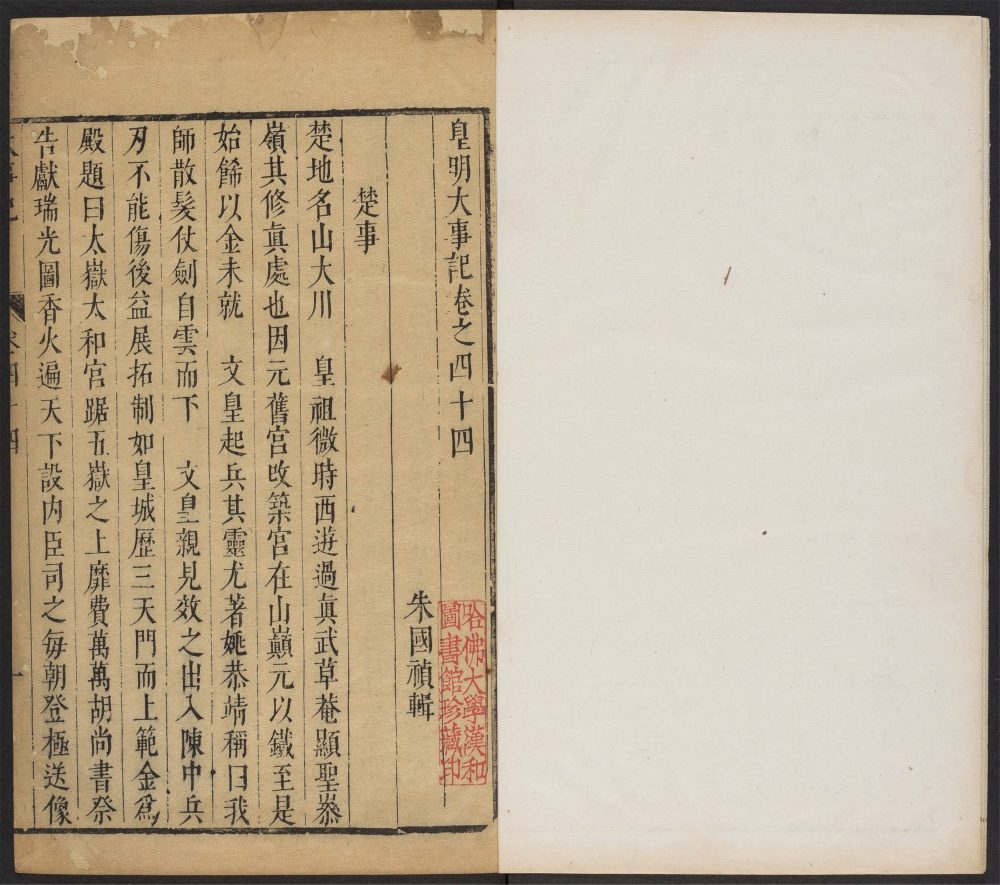 皇明大事記卷之四十四
朱國禎輯
楚事
楚地名山大川　皇祖微時西遊過眞武草菴顯聖叅
嶺其修眞處也因元舊宮改築宮在山巔元以鐵至是
始餙以金未就　文皇起兵其靈尤著姚恭靖稱曰我
師散髮仗劍自雲而下　文皇親見效之出入陳中兵
刃不能傷後益展拓制如皇城歷三天門而上範金爲
殿題曰太嶽太和宮踞五嶽之上靡費萬萬胡尚書祭
告獻瑞光圖香火遍天下設內臣司之每朝登極送像
哈佛大學漢和
圖書館珍藏印